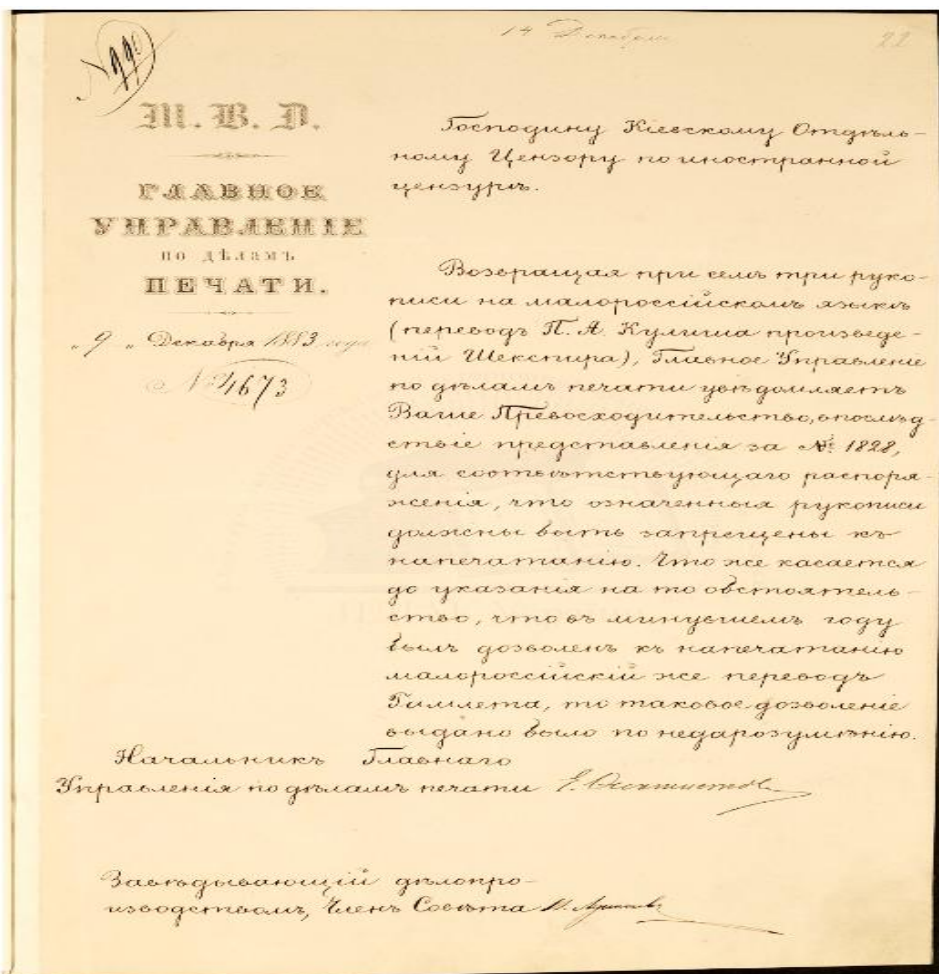 14 Декабря
22
№ 990
М. В. Д.
ГЛАВНОЕ
УПРАВЛЕНІЕ
ПО ДѢЛАМЪ
ПЕЧАТИ.
„ 9 „ Декабря 1883 года
№ 4673
Господину Кіевскому Отдѣль-
ному Цензору по иностранной
цензурѣ.
Возвращая при семъ три руко-
писи на малороссійскомъ языкѣ
(переводъ П. А. Кулиша произведе-
ній Шекспира), Главное Управленіе
по дѣламъ печати увѣдомляетъ
Ваше Превосходительство, впослѣд-
ствіе представленія за № 1828,
для соотвѣтствующаго распоря-
женія, что означенныя рукописи
должны быть запрещены къ
напечатанію. Что же касается
до указанія на то обстоятель-
ство, что въ минувшемъ году
былъ дозволенъ къ напечатанію
малороссійскій же переводъ
Гамлета, то таковое дозволеніе
выдано было по недаразумѣнію.
Начальникъ Главнаго
Управленія по дѣламъ печати Е. Феоктистовъ
Завѣдывающій дѣлопро-
изводствомъ, Членъ Совѣта